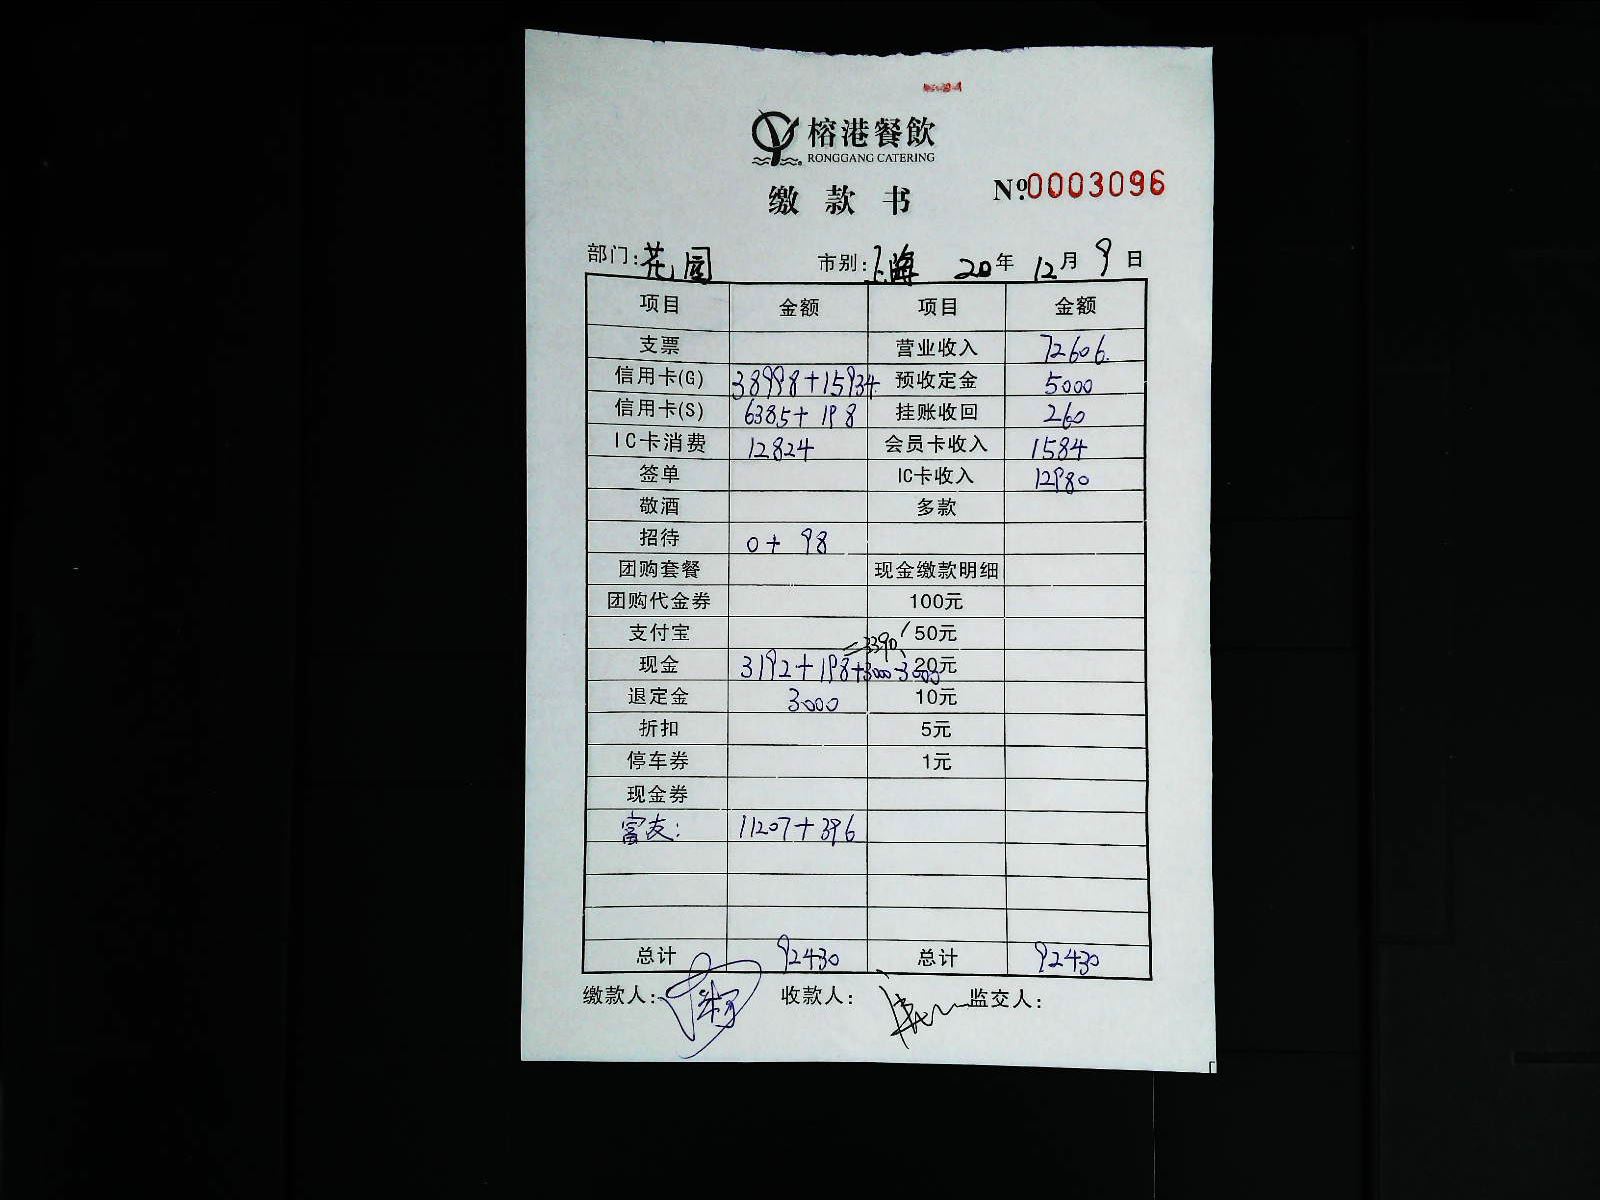 榕港餐飲
RONGGANG CATERING
缴款书
Nº:0003096
部门:花园 市别:上海 20年 12月 9日
项目 金额 项目 金额
支票 营业收入 72606.
信用卡(G) 38998+15934 预收定金 5000
信用卡(S) 6385+198 挂账收回 260
IC卡消费 12824 会员卡收入 1584
签单 IC卡收入 12980
敬酒 多款
招待 0+ 98
团购套餐 现金缴款明细
团购代金券 100元
支付宝 50元
=3390
现金 3192+198+3000-3000 20元
退定金 3000 10元
折扣 5元
停车券 1元
现金券
富友: 11207+396
总计 92430 总计 92430
缴款人: 收款人: 监交人: